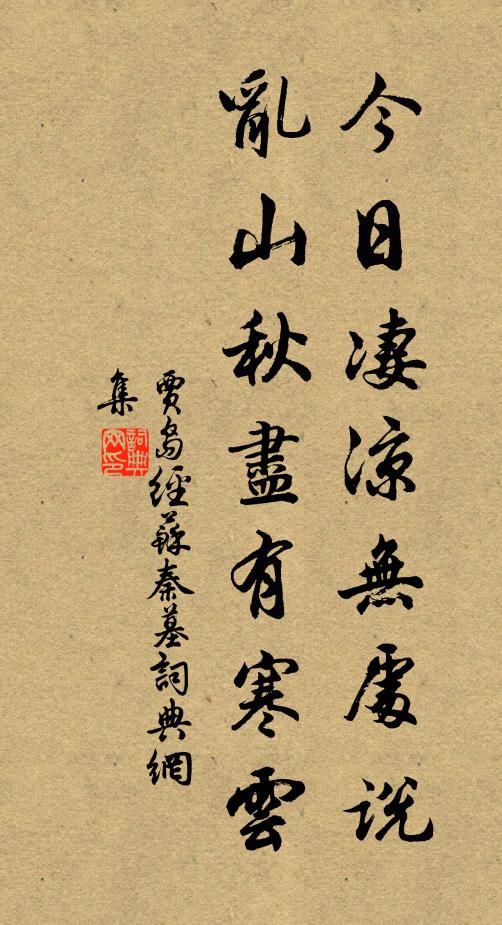 今日凄涼無處説
亂山秋盡有寒雲
賈島經蘇秦墓詞典網
集
詞典
网印